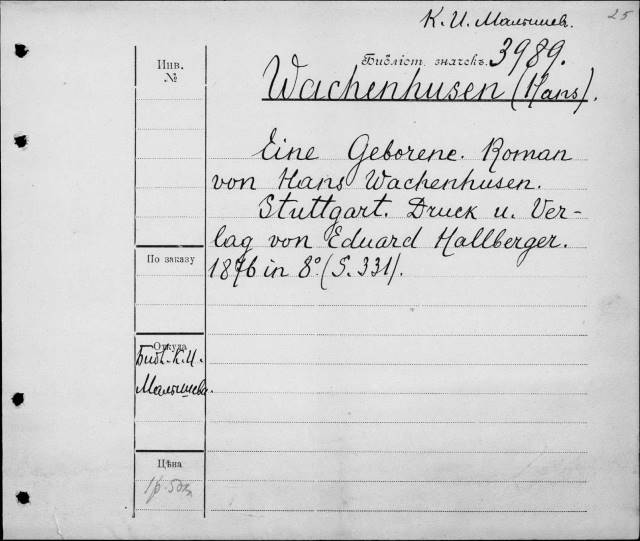 К. И. Малышев.
25
Инв.
№
Библіот. значекъ. 3989.
Wachenhusen (Hans).
Eine Geborene. Roman
von Hans Wachenhusen.
Stuttgart. Druck u. Ver-
lag von Eduard Hallberger.
1876 in 8° (S. 331).
По заказу
Откуда
Библ. К. И.
Малышева.
Цѣна
1 р. 50 к.